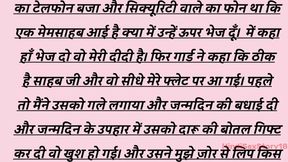 का टेलफोन बजा और सिक्यूरिटी वाले का फोन था कि
एक मेमसाहब आई है क्या में उन्हें ऊपर भेज दूँ।  में कहा
हाँ भेज दो वो मेरी दीदी है। फिर गार्ड ने कहा कि ठीक
है साहब जी और वो सीधे मेरे फ्लेट पर आ गई। पहले
तो मैंने उसको गले लगाया और जन्मदिन की बधाई दी
और जन्मदिन के उपहार में उसको दारू की बोतल गिफ्ट
कर दी वो खुश हो गई। और उसने मुझे जोर से लिप किस